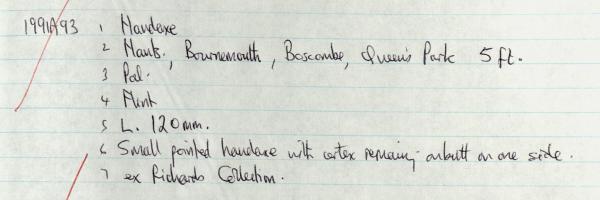 1991A93 1 Handaxe
2 Hants., Bournemouth, Boscombe, Queen's Park 5 ft.
3 Pal.
4 Flint
5 L. 120mm.
6 Small pointed handaxe with cortex remaining on butt on one side.
7 ex Richards Collection.